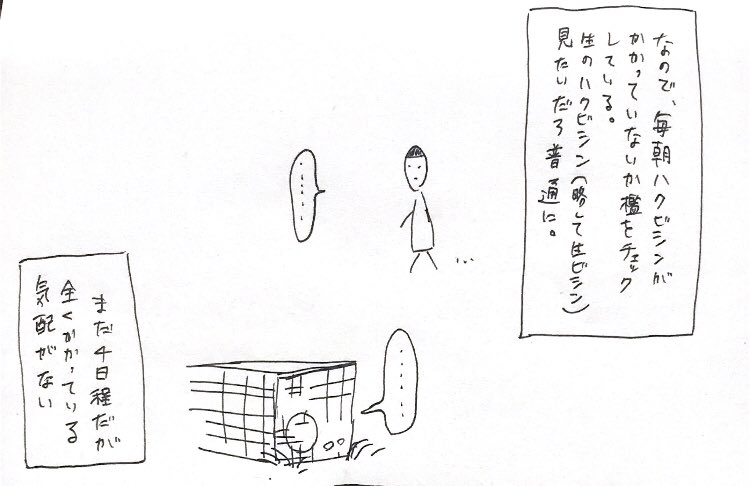 なので、毎朝ハクビシンが
かかっていないか檻をチェック
している。
生のハクビシン(略して生ビシン)
見たいだろ普通に。
......
...
......
まだ4日程だが
全くかかっている
気配がない